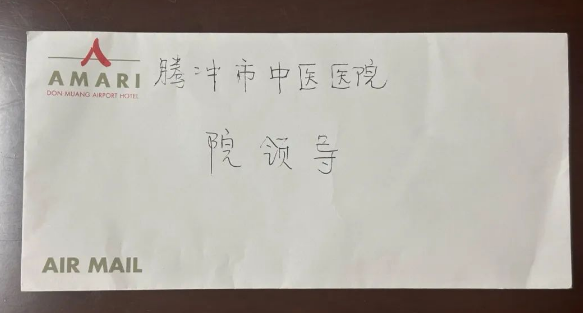 AMARI
DON MUANG AIRPORT HOTEL
腾冲市中医医院
院领导
AIR MAIL